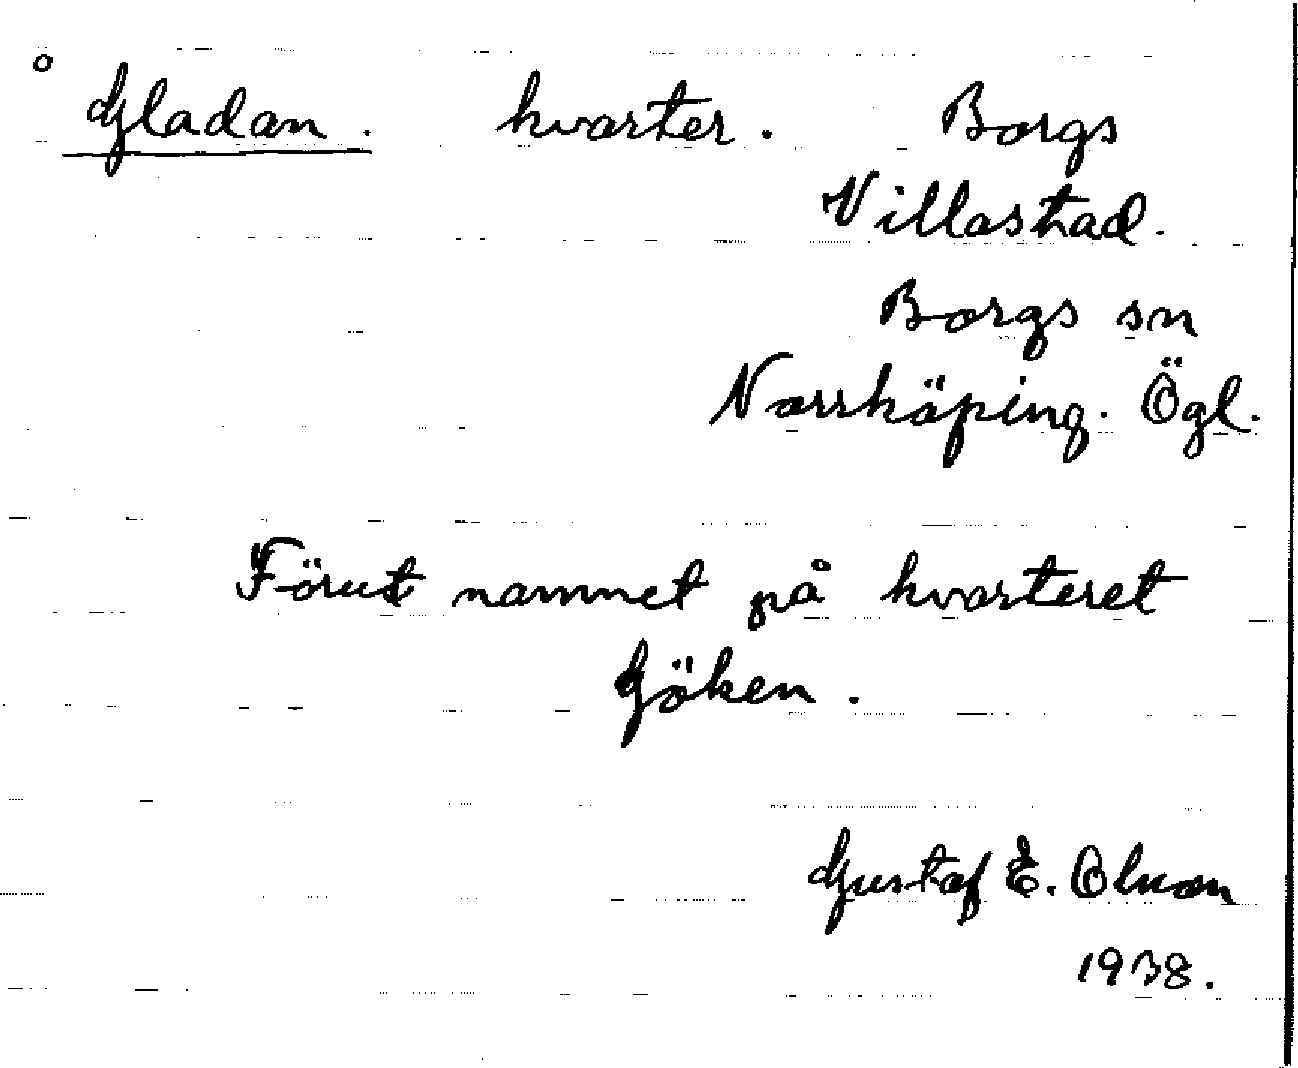 ° Gladan. kvarter. Borgs
Villastad.
Borgs sn
Norrköping. Ögl.
Förut namnet på kvarteret
Göken.
Gustaf E. Olsson
1938.